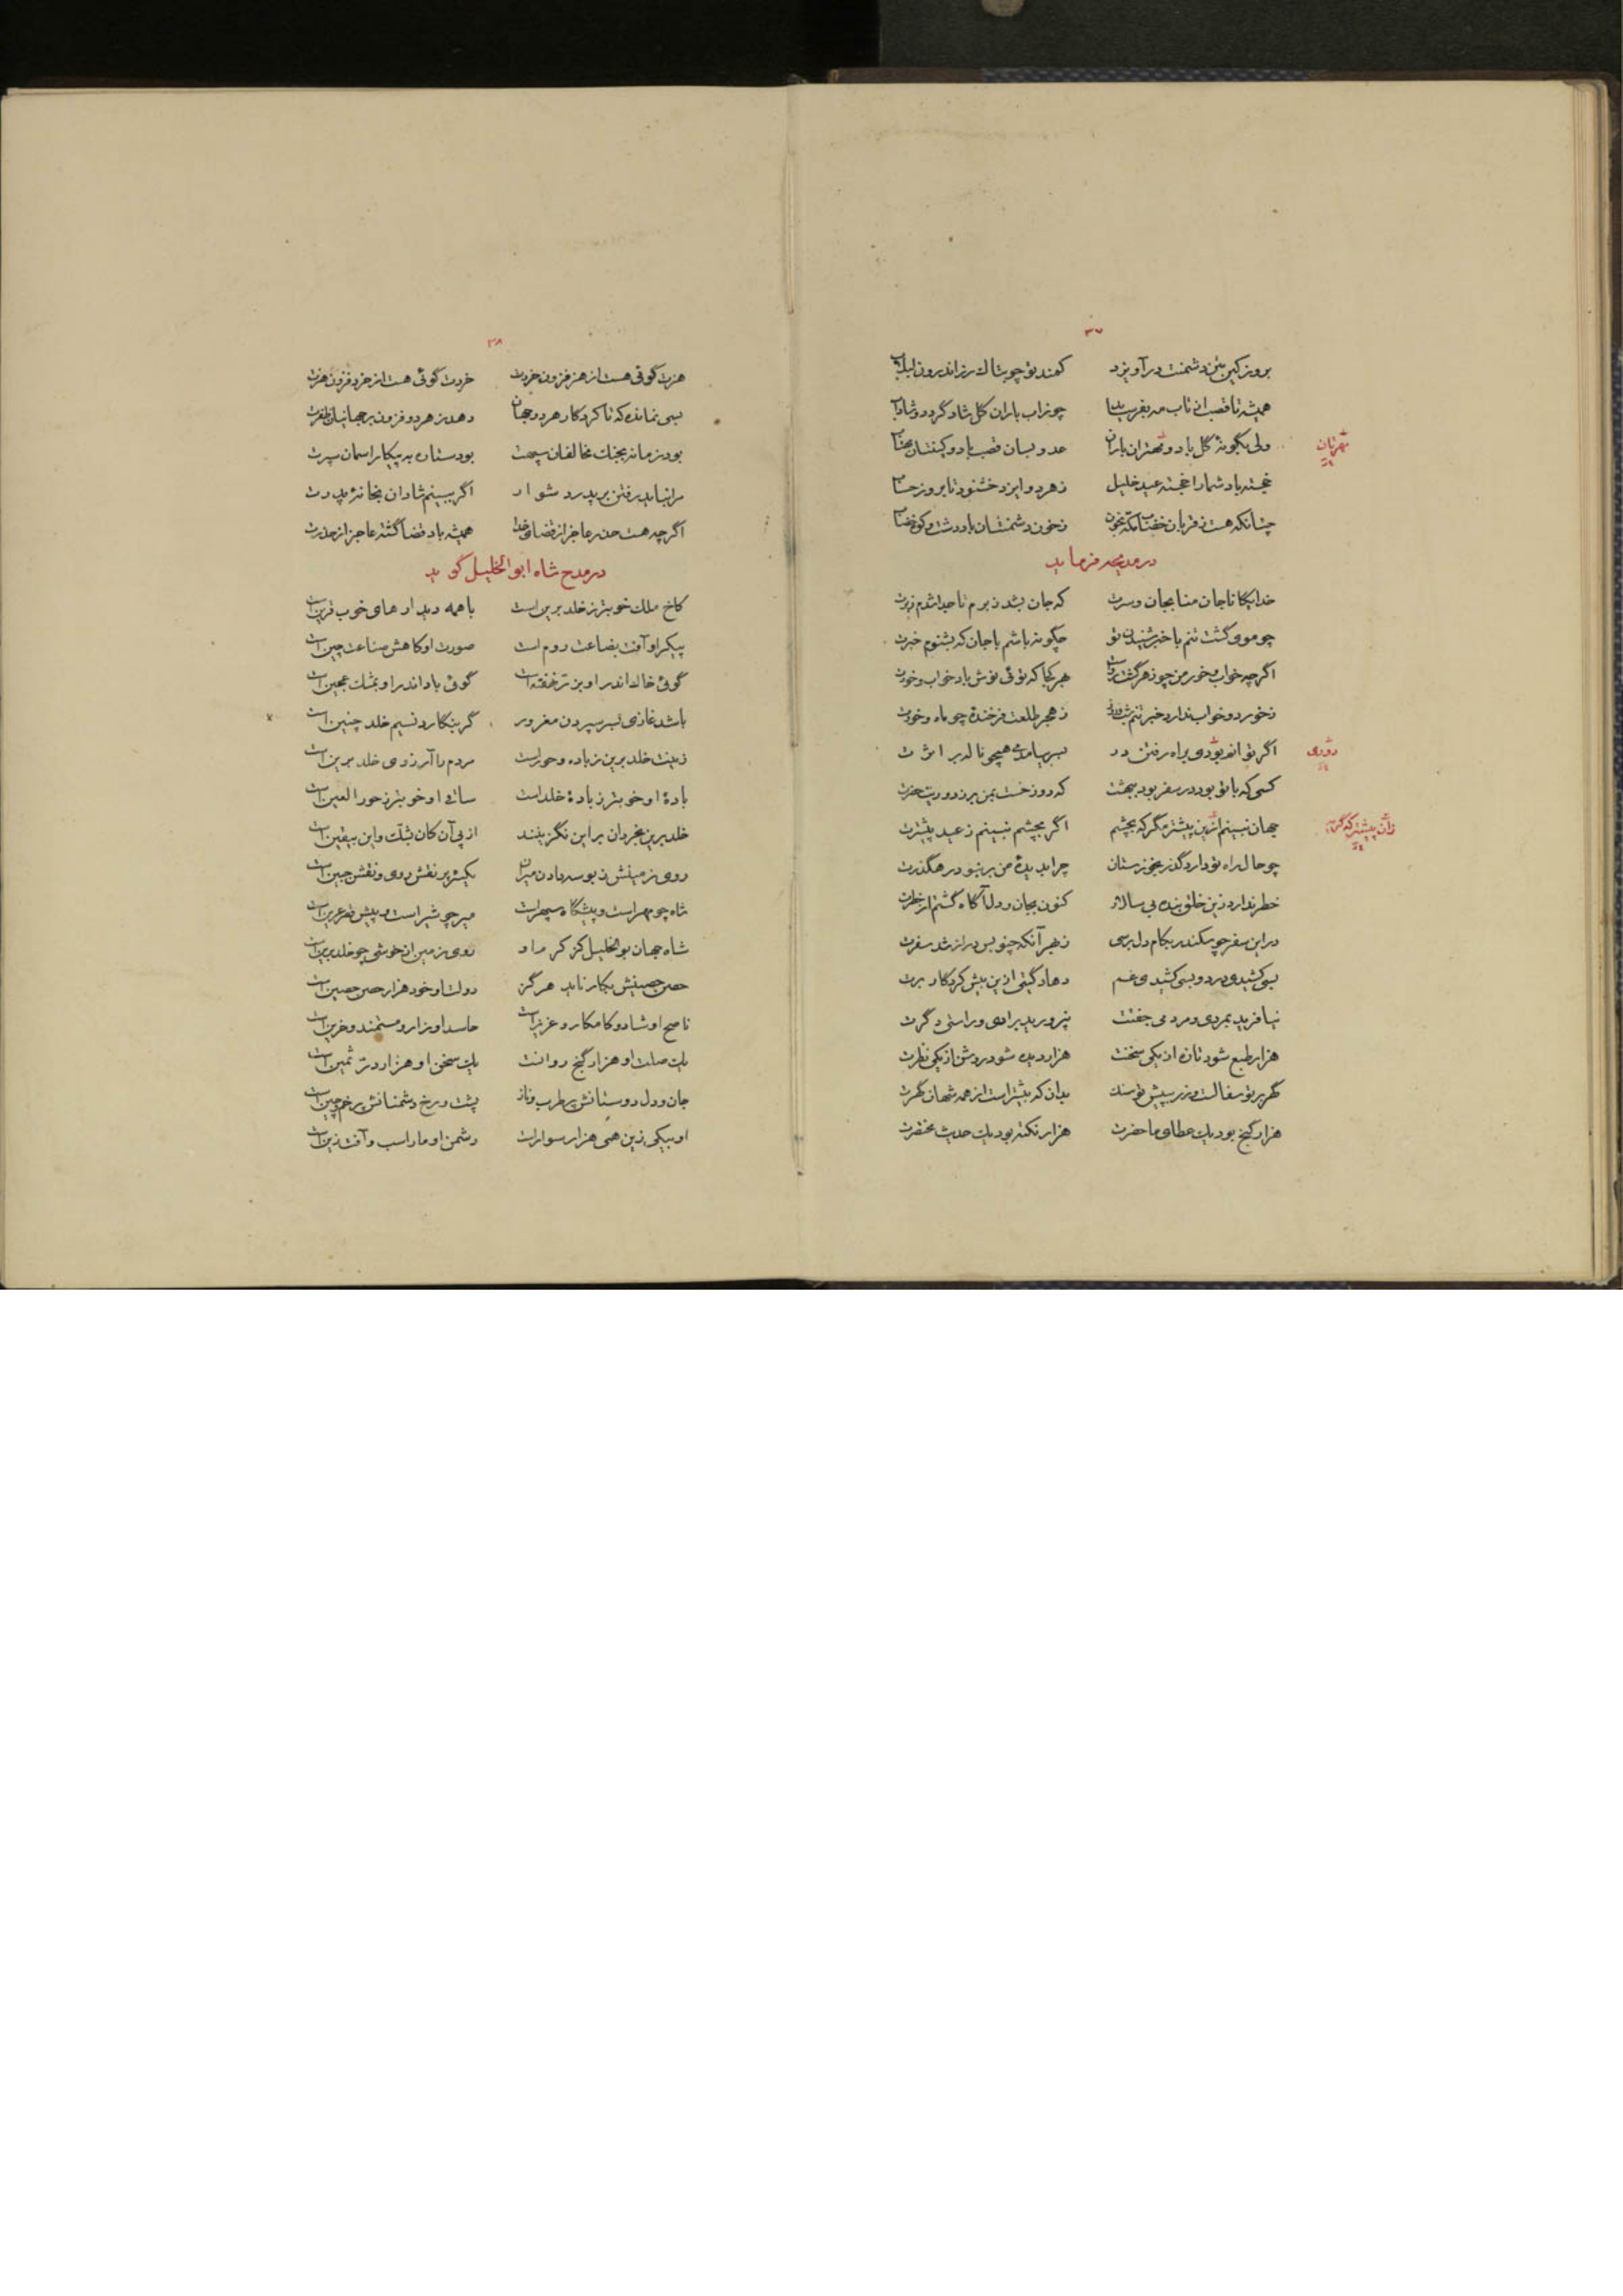 ۳۷
بروز کین بتن دشمنت درآویزد کمند تو چو بتاک رز اندرون لبلاب
همیشه تا قصب از تاب مه بفرساید چو ز آب باران گل شاد گردد و شاداب
ولی بگونه گل باد و مهتران باران عدو بسان قصب باد و کینتان مهتاب
مهرتان
خجسته باد شما را خجسته عید خلیل ز هر دو ایزد خشنود تا بروز حساب
چنانکه هست ز قربان خضاب مکه بخون ز خون دشمنتان باد دشت و کوه خضاب
در مدیحه فرماید
خدایگانا جان منا بجان و سرت که جان بشد ز برم تا جدا شدم ز برت
چو موی گشت تنم با خبر شنیدن تو چگونه باشم با جان که بشنوم خبرت
اگر چه خواب و خور من چو زهر گشت رواست هر کجا که توئی نوش باد خواب و خورت
ز خورد و خواب ندارد خبر تنم شب و روز ز هجر طلعت فرخنده چو ماه و خورت
اگر توانم بودی براه رفتن در بسر بیامدمی همچو ناله بر اثرت
دوری
کسی که با تو بود در سفر بود ببهشت که دوزخست بمن بر ز دوریت حضرت
جهان نبینم ازین پیشتر مگر که بچشم اگر بچشم نبینم ز عید پیشترت
زان پیشتر که گر
چو حال راه تو دارد گذر بخوزستان چرا بدیده من بر نبود رهگذرت
خطر ندارد زین خلق بنده بی سالار کنون بجان و دل آگاه گشتم از خطرت
در این سفر چو سکندر بکام دل برسی ز بهر آنکه چنو بس دراز شد سفرت
بسی کشیدی درد و بسی کشیدی غم دهاد گیتی ازین بیش کردگار برت
نیافرید بمردی و مردمی جفتت نپرورید برادی و راستی دگرت
هزار طبع شود تازه از یکی سخنت هزار دیده شود روشن از یکی نظرت
گهر بر تو سفالست و زر بپیش تو سنگ بدان که بیشتر است از همه شهان گهرت
هزار گنج بود یک عطای ما حضرت هزار نکته بود یک حدیث مختصرت
۳۸
هنرت گوئی هست از هنر فزون خردت خردت گوئی هست از خرد فزون هنرت
بسی نمانده که تا کردگار هر دو جهان دهد ز هر دو فزون بر جهانیان ظفرت
بود زمانه بجنگ مخالفان سپهت بود ستاره به پیکار آسمان سپرت
مرا نباید رفتن بر پدر دشوار اگر ببینم شادان بخانه پدرت
اگر چه هست حذر عاجز از قضای خدا همیشه باد قضا گشته عاجز از حذرت
در مدح شاه ابوالخلیل گوید
کاخ ملک خوبتر ز خلد برین است با همه دیدارهای خوب قرین است
پیکر او آفت بضاعت روم است صورت او کاهش صناعت چین است
گوئی خاک اندر او بزر خفته است گوئی باد اندر او بمشک عجین است
باشد غازی بسر سپردن مغرور گر بنگارد نسیم خلد چنین است
زینت خلد برین ز باده و حور است مردم را آرزوی خلد برین است
باده او خوبتر ز باده خلد است ساقی او خوبتر ز حور العین است
خلد برین بخردان بر این نگزینند از پی آن کان بشک و این بیقین است
روی زمینش ز بوسه دادن میران یکسره پر نقش روی و نقش جبین است
شاه چو مهر است و پیشگاه سپهر است میر چو شیر است و پیش گه عرین است
شاه جهان بو الخلیل کز کرم او روی زمین از خوشی چو خلد برین است
حصن حصینش بکار ناید هرگز دولت او خود هزار حصن حصین است
ناصح او شاد و کامکار و عزیز است حاسد او زار و مستمند و حزین است
یک صلت او هزار گنج روانست یک سخن او هزار در ثمین است
جان و دل دوستانش پر طرب و ناز پشت و رخ دشمنانش پر خم و چین است
او بیکی زین همی هزار سوار است دشمن او مار اسب و آفت زین است